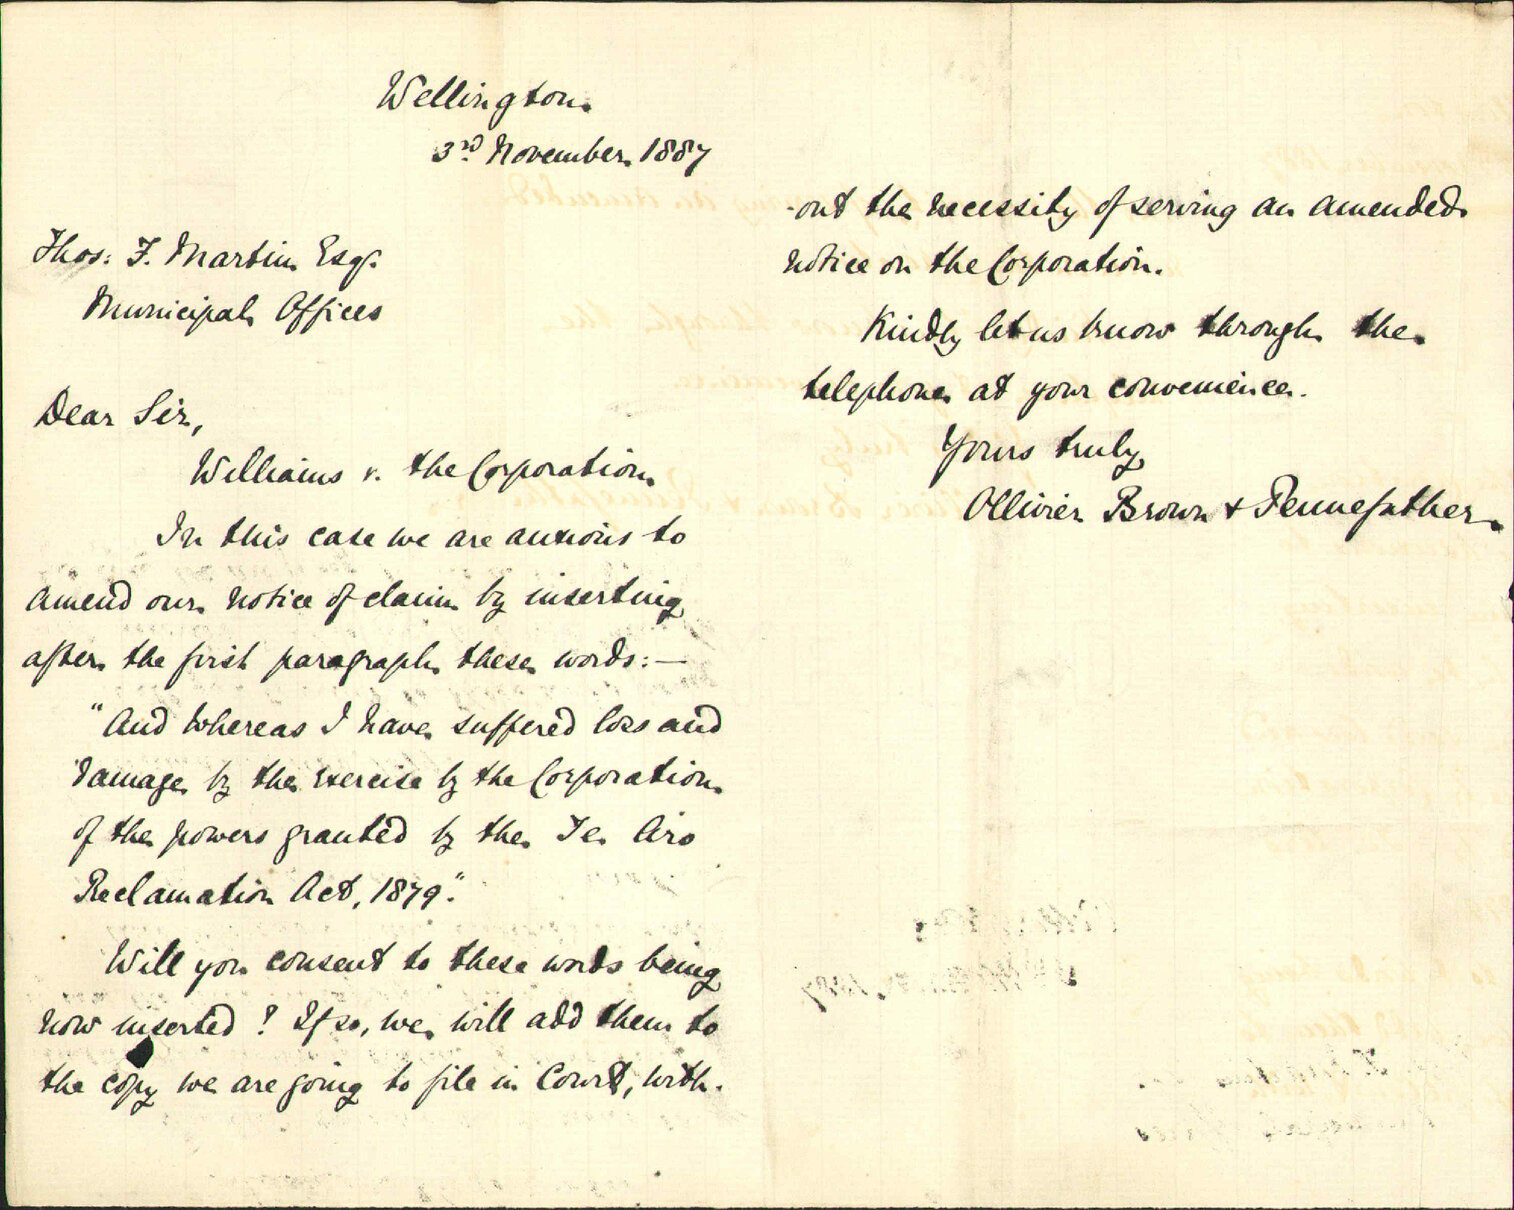 Wellington
3rd November 1887
Thos: F. Martin Esq.
Municipal Offices
Dear Sir,
Williams v. the Corporation
In this case we are anxious to
amend our notice of claim by inserting
after the first paragraph these words:—
"And whereas I have suffered loss and
damage by the exercise by the Corporation
of the powers granted by the Te Aro
Reclamation Act, 1879".
Will you consent to these words being
now inserted? If so, we will add them to
the copy we are going to file in Court, with-
-out the necessity of serving an amended
notice on the Corporation.
Kindly let us know through the
telephone at your convenience.
Yours truly
Ollivier Brown & Pennefather